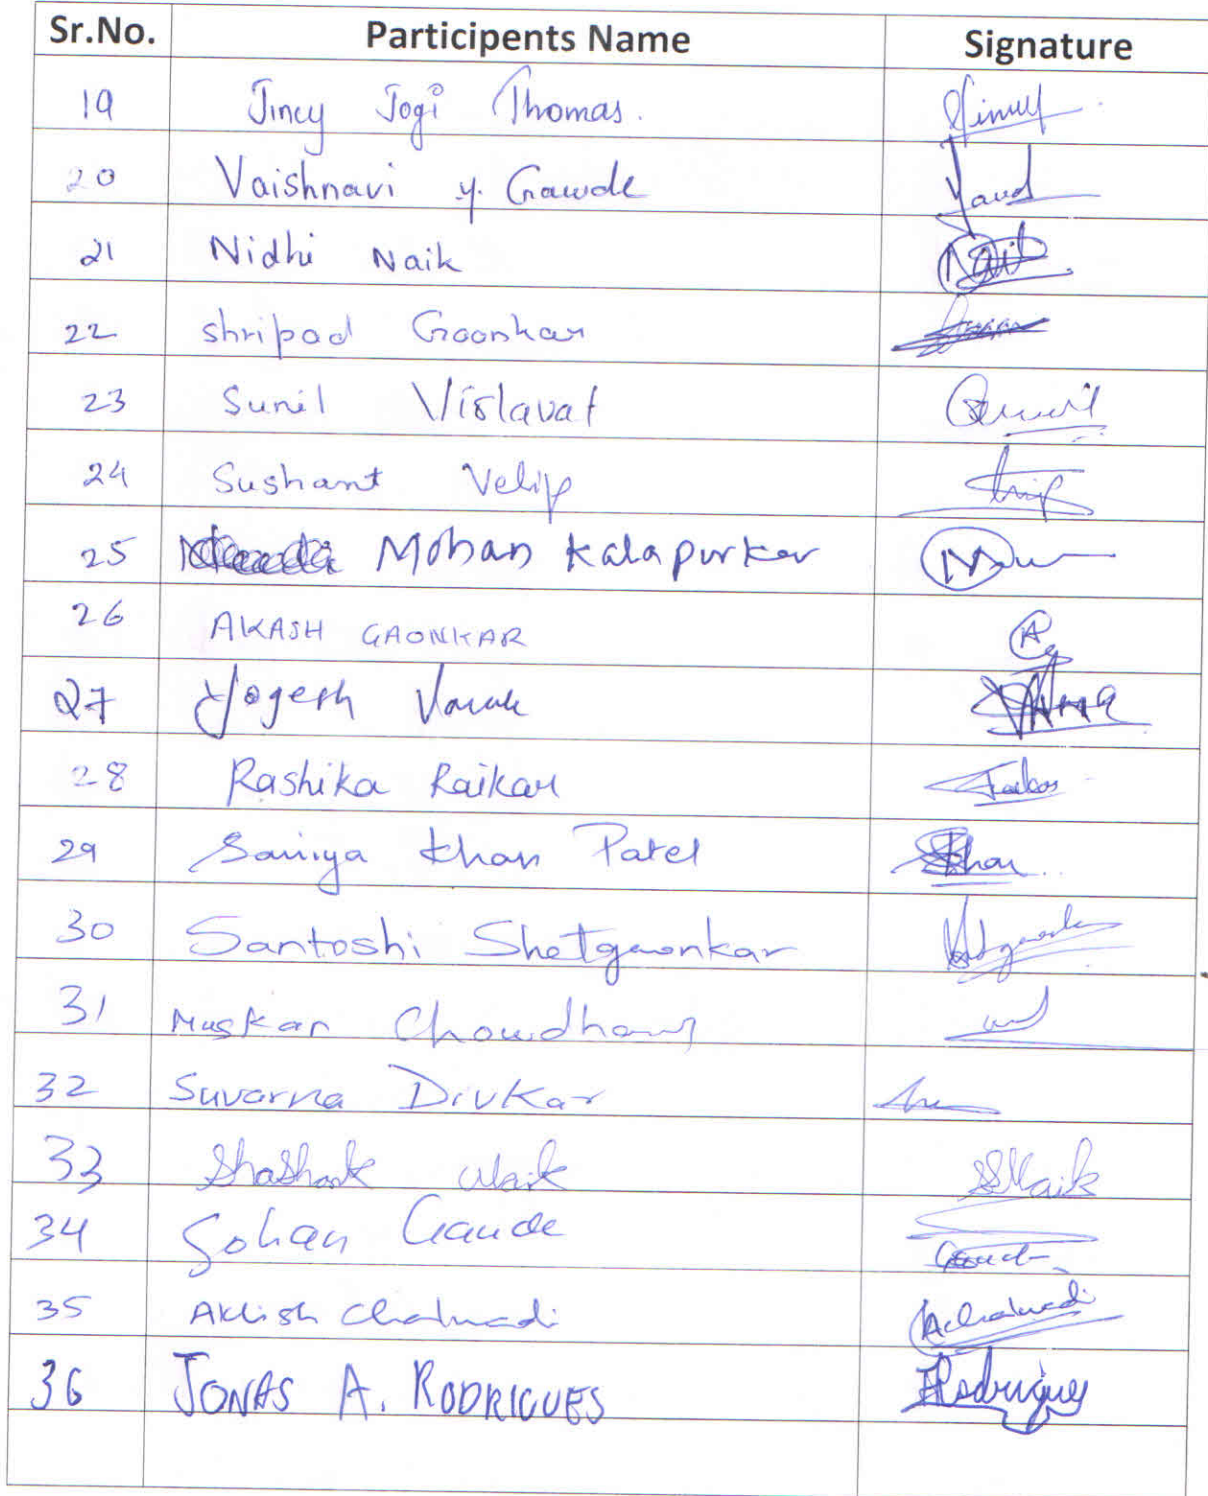 Sr.No. Participents Name Signature
19 Jincy Jogi Thomas.
20 Vaishnavi y. Gawde
21 Nidhi Naik Naik
22 shripad Gaonkar
23 Sunil Vislavat Sunil
24 Sushant Velip
25 Mohan Kalapurker
26 AKASH GAONKAR
27 Yogesh Varak
28 Rashika Raikar
29 Saniya Khan Patel Khan
30 Santoshi Shetgaonkar
31 Muskan Choudhary
32 Suvarna Divkar
33 Shashank Naik SSNaik
34 Sohan Gaude Gaude
35 Chalwadi AChalwadi
36 JONAS A. RODRIGUES Rodrigues